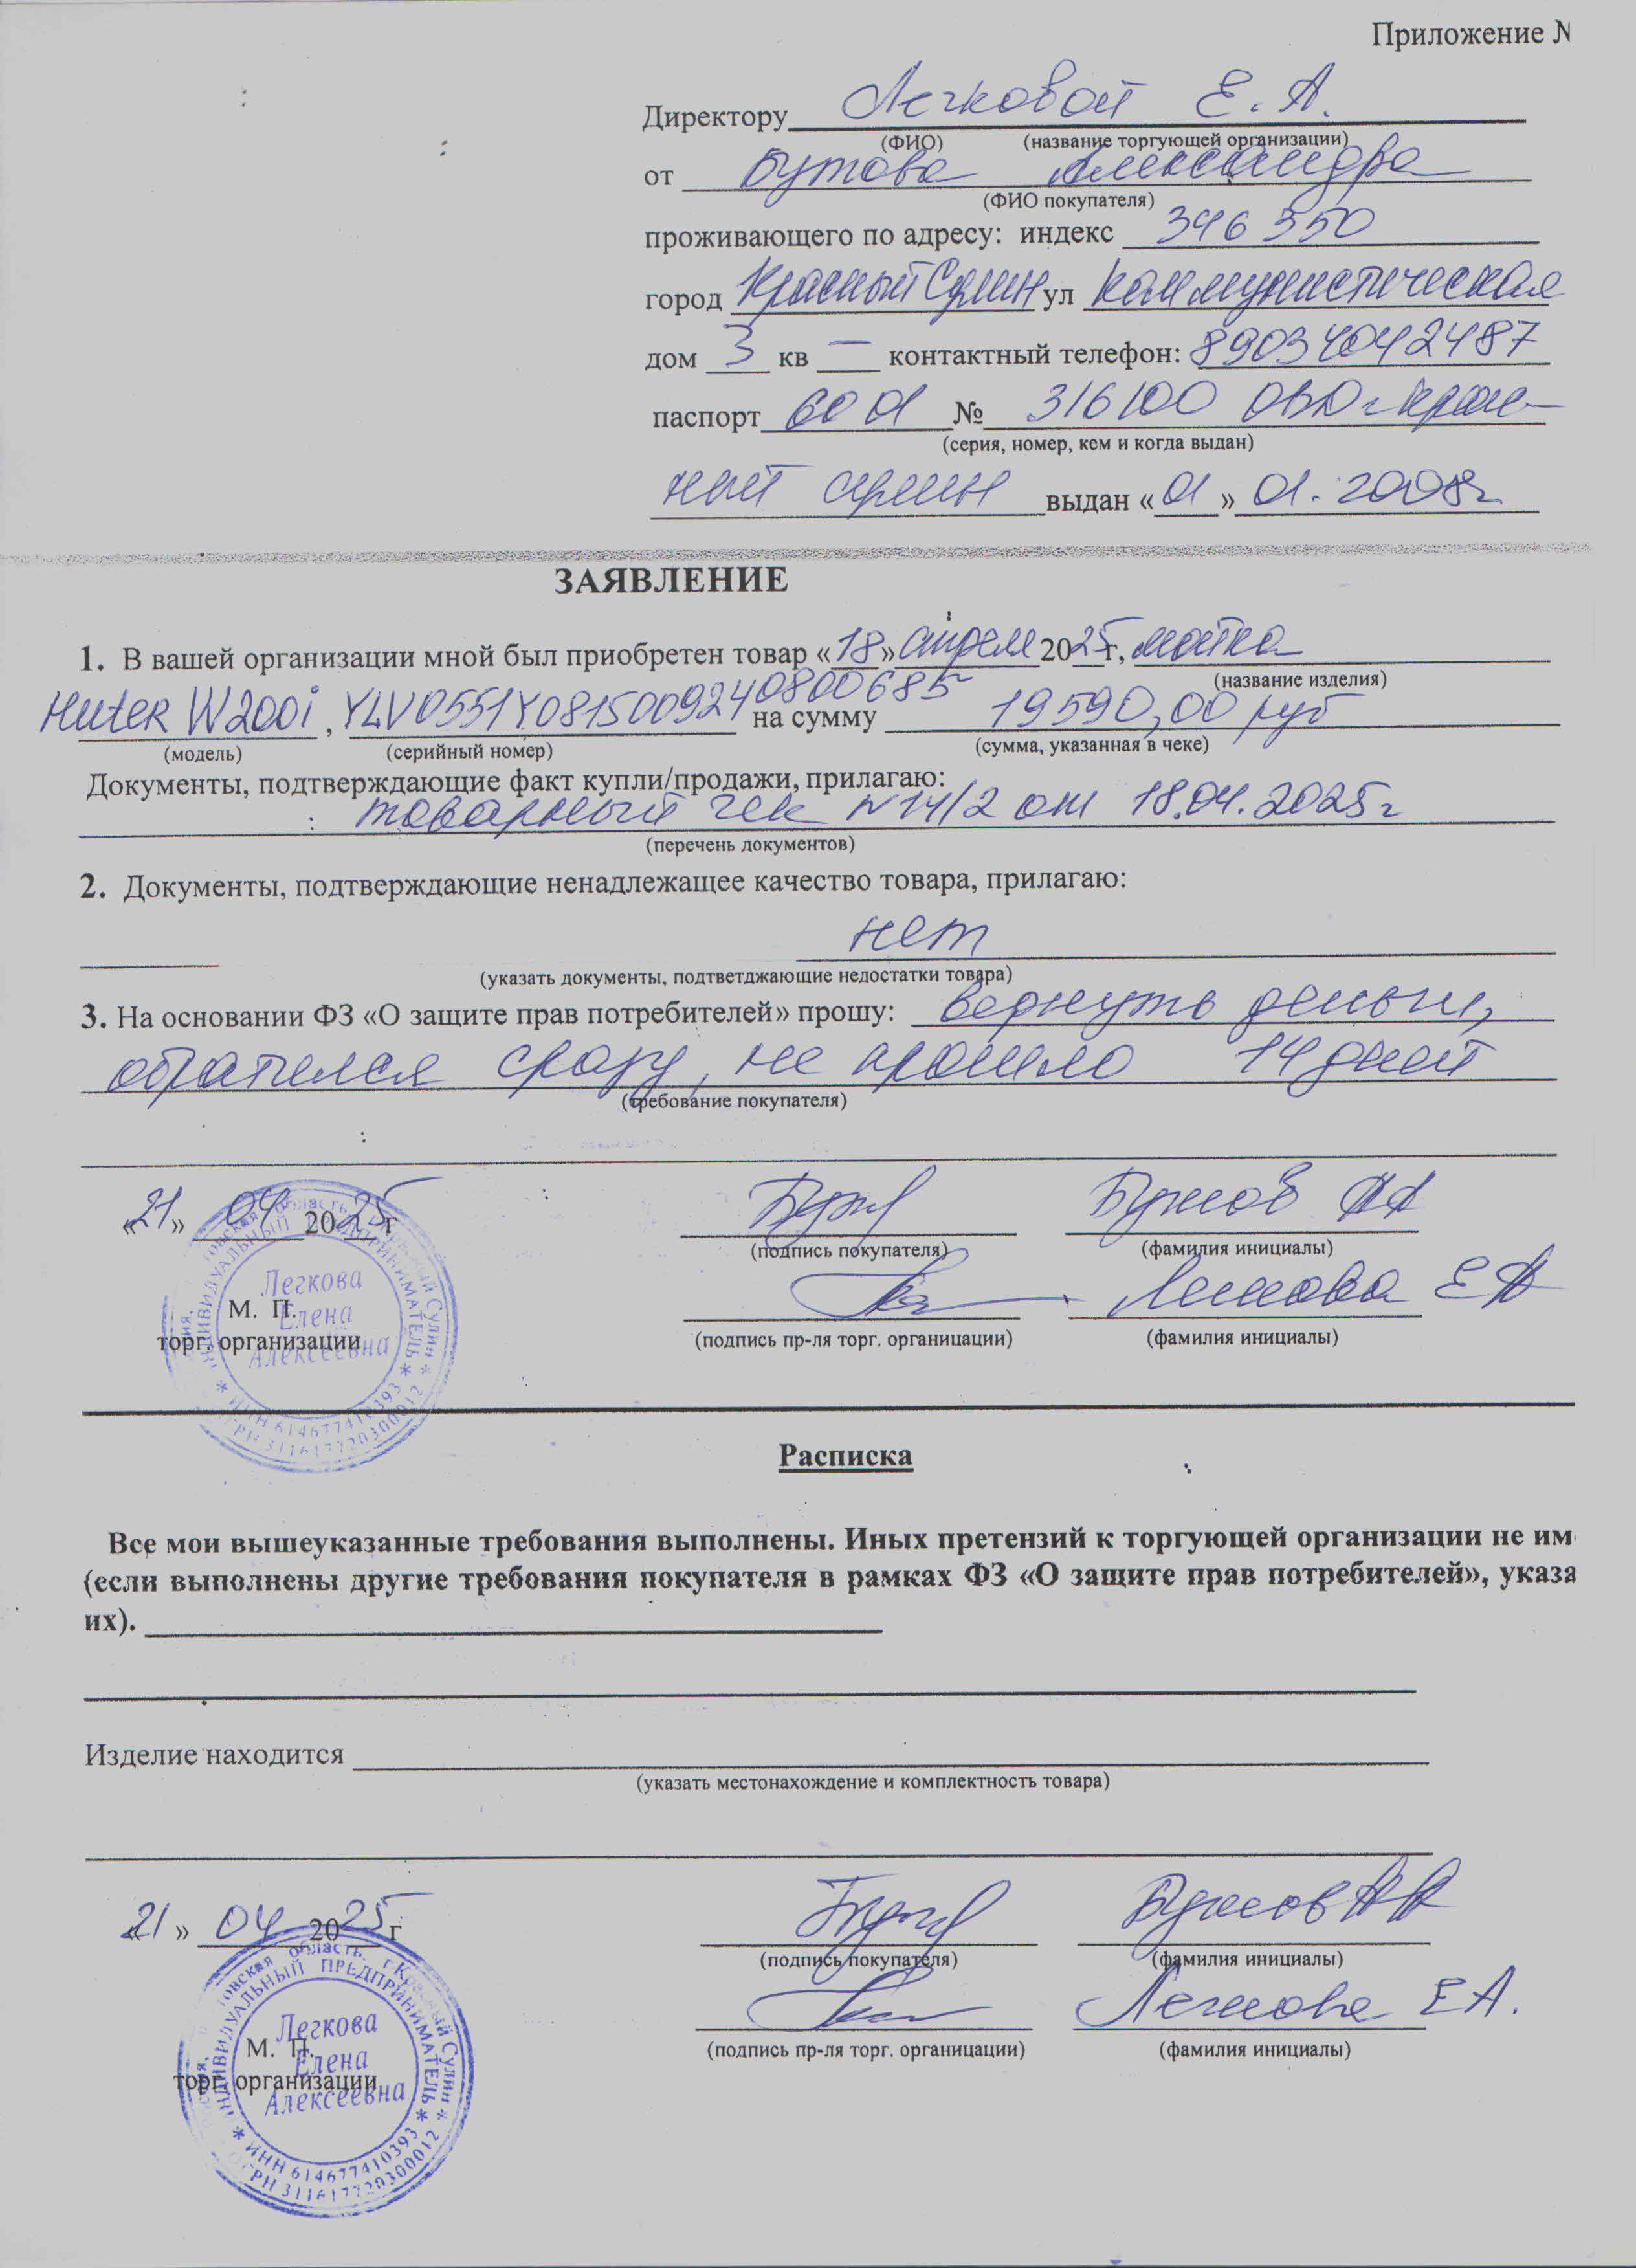 Приложение №
Директору Легковой Е. А.
(ФИО) (название торгующей организации)
от Бутова Александра
(ФИО покупателя)
проживающего по адресу: индекс 346 350
город Красный Сулин ул Коммунистическая
дом 3 кв — контактный телефон: 89034042487
паспорт 60 01 № 316100 ОВД г Крас-
(серия, номер, кем и когда выдан)
ный Сулин выдан «01» 01. 2008г
ЗАЯВЛЕНИЕ
1. В вашей организации мной был приобретен товар «18» апреля 2025г, мойка
(название изделия)
Huter W200i, YLV0551Y0815009240800685 на сумму 19590,00 руб
(модель) (серийный номер) (сумма, указанная в чеке)
Документы, подтверждающие факт купли/продажи, прилагаю:
товарный чек N14/2 от 18.04.2025г
(перечень документов)
2. Документы, подтверждающие ненадлежащее качество товара, прилагаю:
нет
(указать документы, подтветджающие недостатки товара)
3. На основании ФЗ «О защите прав потребителей» прошу: вернуть деньги,
обратился сразу, не прошло 14 дней
(требование покупателя)
«21» 04 2025г Бутов АА
(подпись покупателя) (фамилия инициалы)
Легкова ЕА
М. П.
торг. организации
(подпись пр-ля торг. органицации) (фамилия инициалы)
область, г.Красный Сулин
ИНДИВИДУАЛЬНЫЙ ПРЕДПРИНИМАТЕЛЬ
Легкова
Елена
Алексеевна
* ИНН 614677410393 *
ОГРН 311617720300012 *
Расписка
Все мои вышеуказанные требования выполнены. Иных претензий к торгующей организации не им
(если выполнены другие требования покупателя в рамках ФЗ «О защите прав потребителей», указа
их).
Изделие находится
(указать местонахождение и комплектность товара)
«21» 04 2025г Бутов АА
(подпись покупателя) (фамилия инициалы)
Легкова ЕА.
М. П.
торг. организации
(подпись пр-ля торг. органицации) (фамилия инициалы)
область, г.Красный Сулин
ИНДИВИДУАЛЬНЫЙ ПРЕДПРИНИМАТЕЛЬ
Легкова
Елена
Алексеевна
* ИНН 614677410393 *
ОГРН 311617720300012 *